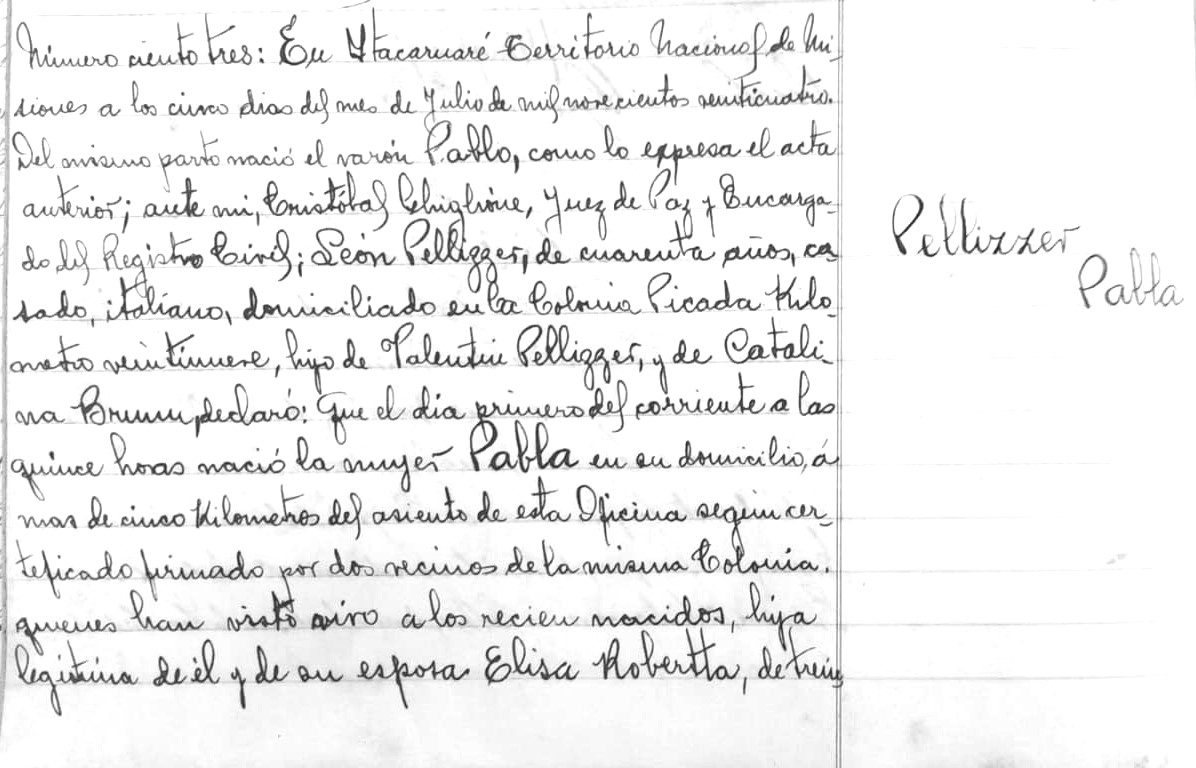 Número ciento tres: En Ytacaruaré Territorio Nacional de Mi-
siones a los cinco dias del mes de Julio de mil novecientos veinticuatro.
Del mismo parto nació el varón Pablo, como lo expresa el acta
anterior; ante mi, Cristóbal Ghiglione, Juez de Paz y Encarga-
do del Registro Civil; León Pellizzer, de cuarenta años, ca
sado, italiano, domiciliado en la Colonia Picada Kilo-
metro veintinueve, hijo de Valentin Pellizzer, y de Catali-
na Brunn, declaró: Que el dia primero del corriente a las
quince horas nació la mujer Pabla en su domicilio, á
mas de cinco Kilometros del asiento de esta Oficina según cer-
teficado firmado por dos vecinos de la misma Colonia.
quienes han visto vivo a los recien nacidos, hija
legitima de él y de su esposa Elisa Robertta, de trein-
Pellizzer
Pabla